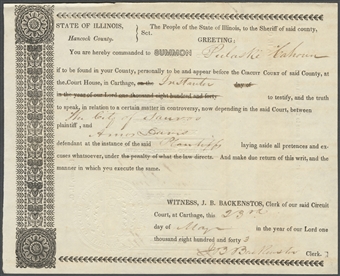 STATE OF ILLINOIS,
Hancock County.
Sct.
The People of the State of Illinois, to the Sheriff of said county,
GREETING;
You are hereby commanded to SUMMON Pulaski Cahoon
if to be found in your County, personally to be and appear before the CIRCUIT COURT of said County, at
the Court House, in Carthage, on the Instanter day of
in the year of our Lord one thousand eight hundred and forty to testify, and the truth
to speak, in relation to a certain matter in controversy, now depending in the said Court, between
The City of Nauvoo
plaintiff , and Amos Davis
defendant at the instance of the said Plaintiff laying aside all pretences and ex-
cuses whatsoever, under the penalty of what the law directs. And make due return of this writ, and the
manner in which you execute the same.
WITNESS, J. B. BACKENSTOS, Clerk of our said Circuit
Court, at Carthage, this 23rd
day of May in the year of our Lord one
thousand eight hundred and forty 3
J B Backenstos Clerk.